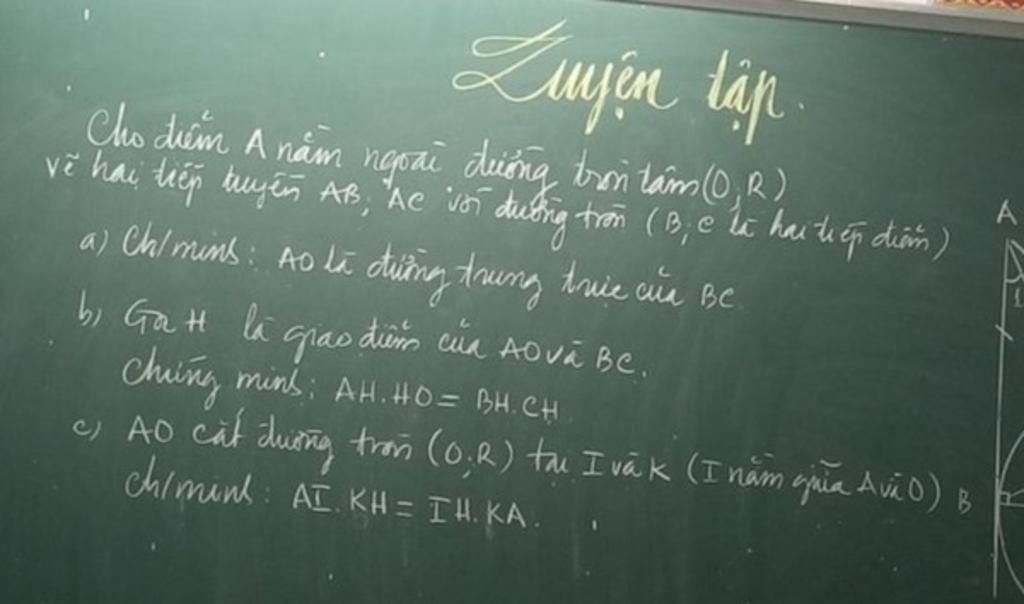 Luyện tập.
Cho điểm A nằm ngoài đường tròn tâm (O,R)
vẽ hai tiếp tuyến AB; AC với đường tròn (B; C là hai tiếp điểm)
a) Ch/minh: AO là đường trung trực của BC.
b) Gọi H là giao điểm của AO và BC.
Chứng minh: AH.HO = BH.CH
c) AO cắt đường tròn (O;R) tại I và K (I nằm giữa A và O)
Ch/minh: AI.KH = IH.KA.
A
1
B